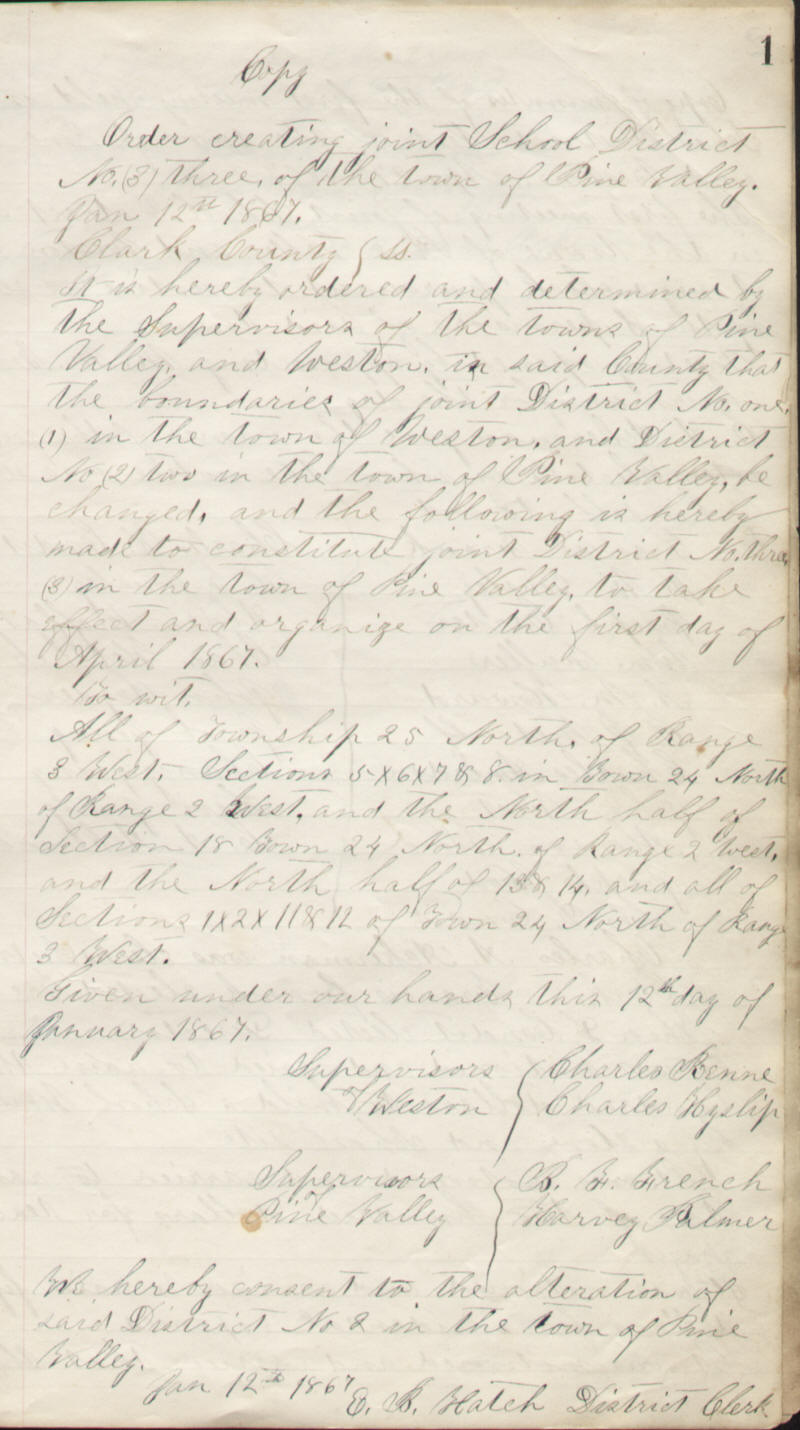 1
Copy
Order creating joint School District
No. (3) three, of the town of Pine Valley.
Jan 12th 1867.
Clark County } ss.
It is hereby ordered and determined by
the Supervisors of the towns of Pine
Valley, and Weston, in said County that
the boundaries of joint District No. one,
(1) in the town of Weston, and District
No (2) two in the town of Pine Valley, be
changed, and the following is hereby
made to constitute joint District No. three
(3) in the town of Pine Valley, to take
effect and organize on the first day of
April 1867.
To wit.
All of Township 25 North, of Range
3 West, Sections 5 X 6 X 7 & 8. in Town 24 North
of Range 2 West, and the North half of
Section 18 Town 24 North. of Range 2 West,
and the North half of 13 & 14, and all of
Sections 1 X 2 X 11 & 12 of Town 24 North of Range
3 West.
Given under our hands this 12th day of
January 1867.
Supervisors of Weston { Charles Renne
Charles Hyslip
Supervisors of Pine Valley { B. F. French
Harvey Palmer
We hereby consent to the alteration of
said District No 2 in the town of Pine
Valley.
Jan 12th 1867
E. B. Hatch District Clerk